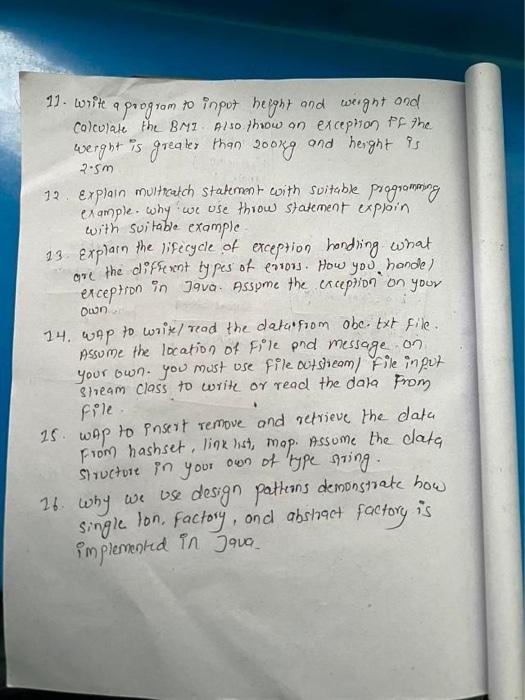 11. write a program to input height and weight and
calculate the BMI. Also throw an exception if the
weight is greater than 200kg and height is
2.5m
12. explain multicatch statement with suitable programming
example. why we use throw statement explain
with suitable example.
13 explain the lifecycle of exception handling what
are the different types of errors. How you handle
exception in Java. Assume the exception on your
own.
14. WAP to write/read the data from abc.txt file.
Assume the location of file and message on
your own. you must use file outstream/ file input
stream class to write or read the data from
file.
15. WAP to insert remove and retrieve the data
from hashset, link list, map. Assume the data
structure in your own of type string.
16. why we use design patterns demonstrate how
single ton, factory, and abstract factory is
implemented in Java.